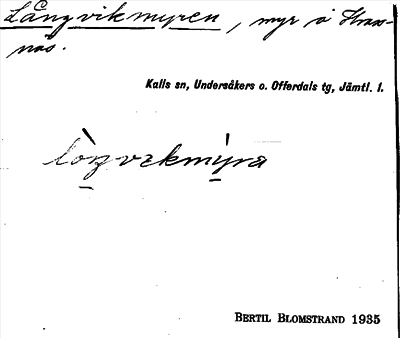 Långvikmyren, myr å Kraxnäs.
Kalls sn, Undersåkers o. Offerdals tg, Jämtl. l.
lòŋvikmýra
BERTIL BLOMSTRAND 1935